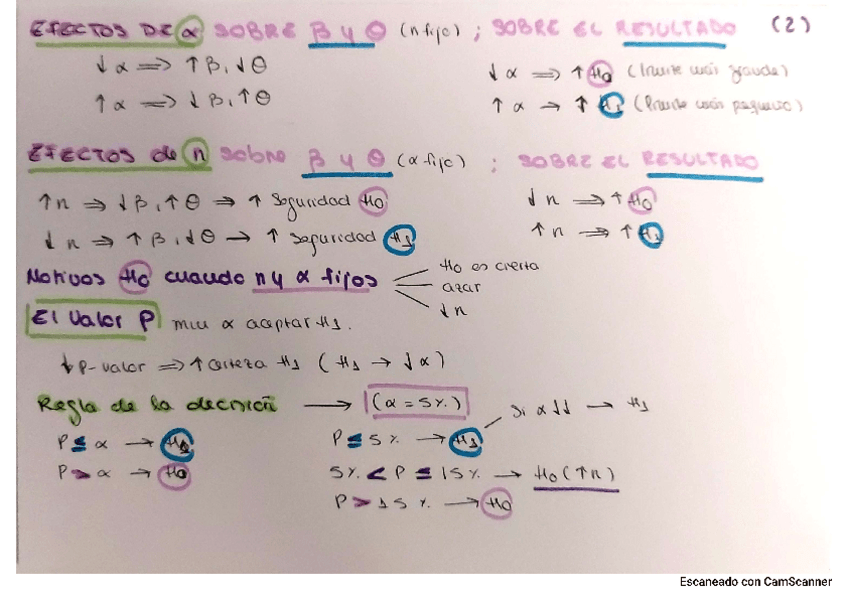 EFECTOS DE α SOBRE β Y θ (n fijo) ; SOBRE EL RESULTADO (2)
↓ α ⇒ ↑ β, ↓ θ
↓ α ⇒ ↑ H₀ (límite más grande)
↑ α ⇒ ↓ β, ↑ θ
↑ α → ↑ H₁ (límite más pequeño)
EFECTOS de n SOBRE β Y θ (α fijo) ; SOBRE EL RESULTADO
↑ n ⇒ ↓ β, ↑ θ ⇒ ↑ Seguridad H₀
↓ n ⇒ ↑ H₀
↓ n ⇒ ↑ β, ↓ θ → ↑ Seguridad H₁
↑ n ⇒ ↑ H₁
Motivos H₀ cuando n y α fijos
H₀ es cierta
azar
↓ n
El valor P min α aceptar H₁.
↓ P-valor ⇒ ↑ certeza H₁ (H₁ → ↓ α)
Regla de la decisión → (α = 5%)
Si α ↓↓ → H₁
P ≤ α → H₁
P ≤ 5% → H₁
P > α → H₀
5% < P ≤ 15% → H₀ (↑n)
P > 15% → H₀
Escaneado con CamScanner